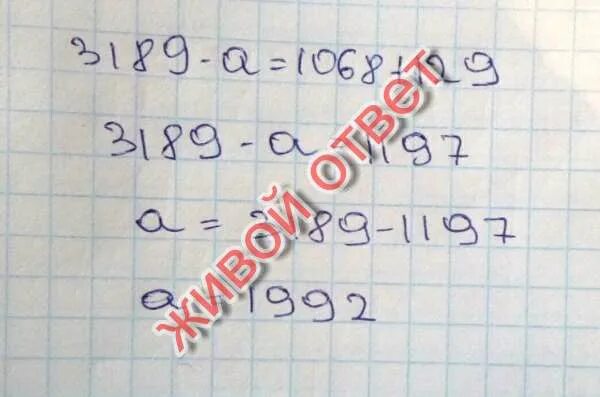 3189 - a = 1068 + 129
3189 - a = 1197
a = 3189 - 1197
a = 1992
ЖИВОЙ ОТВЕТ